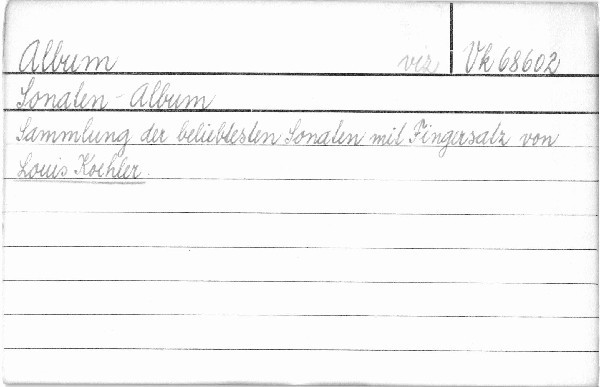 Album viz Vk 68602
Sonaten-Album
Sammlung der beliebtesten Sonaten mit Fingersatz von
Louis Koehler.